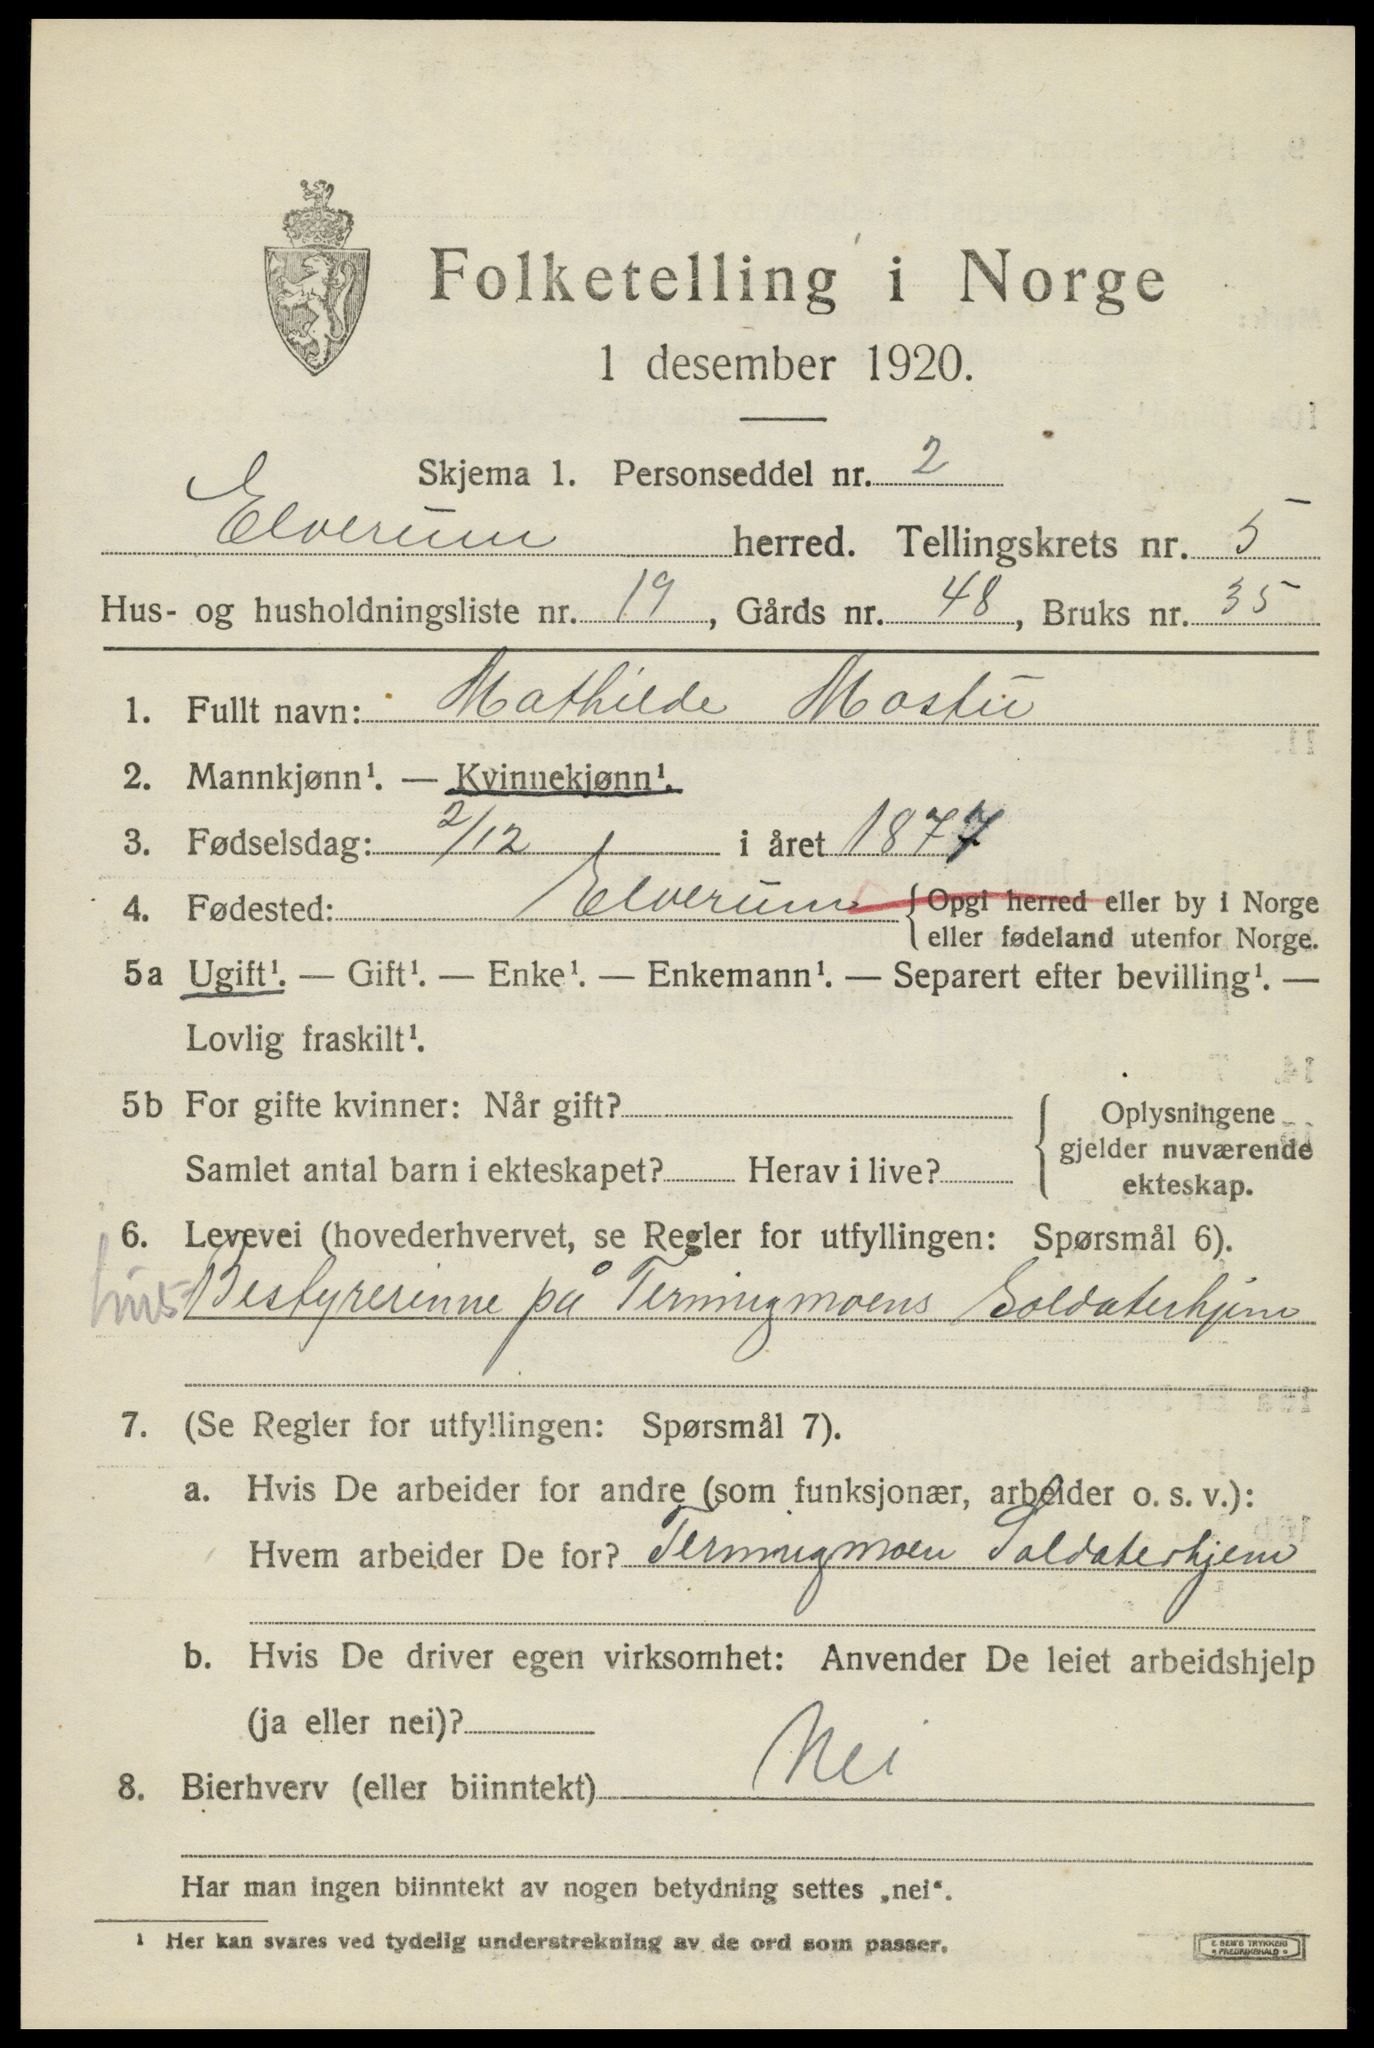 Folketelling i Norge
1 desember 1920.
Skjema 1. Personseddel nr. 2
Elverum herred. Tellingskrets nr. 5
Hus- og husholdningsliste nr. 19, Gårds nr. 48, Bruks nr. 35
1. Fullt navn: Mathilde Mostu
2. Mannkjønn¹. — Kvinnekjønn¹.
3. Fødselsdag: 2/12 i året 1877
4. Fødested: Elverum { Opgi herred eller by i Norge
eller fødeland utenfor Norge.
5a Ugift¹. — Gift¹. — Enke¹. — Enkemann¹. — Separert efter bevilling¹. —
Lovlig fraskilt¹.
5b For gifte kvinner: Når gift?
Samlet antal barn i ekteskapet? Herav i live?
Oplysningene
gjelder nuværende
ekteskap.
6. Levevei (hovederhvervet, se Regler for utfyllingen: Spørsmål 6).
Bestyrerinne på Terningmoens Soldaterhjem
7. (Se Regler for utfyllingen: Spørsmål 7).
a. Hvis De arbeider for andre (som funksjonær, arbeider o. s. v.):
Hvem arbeider De for? Terningmoen Soldaterhjem
b. Hvis De driver egen virksomhet: Anvender De leiet arbeidshjelp
(ja eller nei)?
8. Bierhverv (eller biinntekt) Nei
Har man ingen biinntekt av nogen betydning settes „nei“.
¹ Her kan svares ved tydelig understrekning av de ord som passer.
E. SEM'S TRYKKERI
• FREDRIKSHALD •